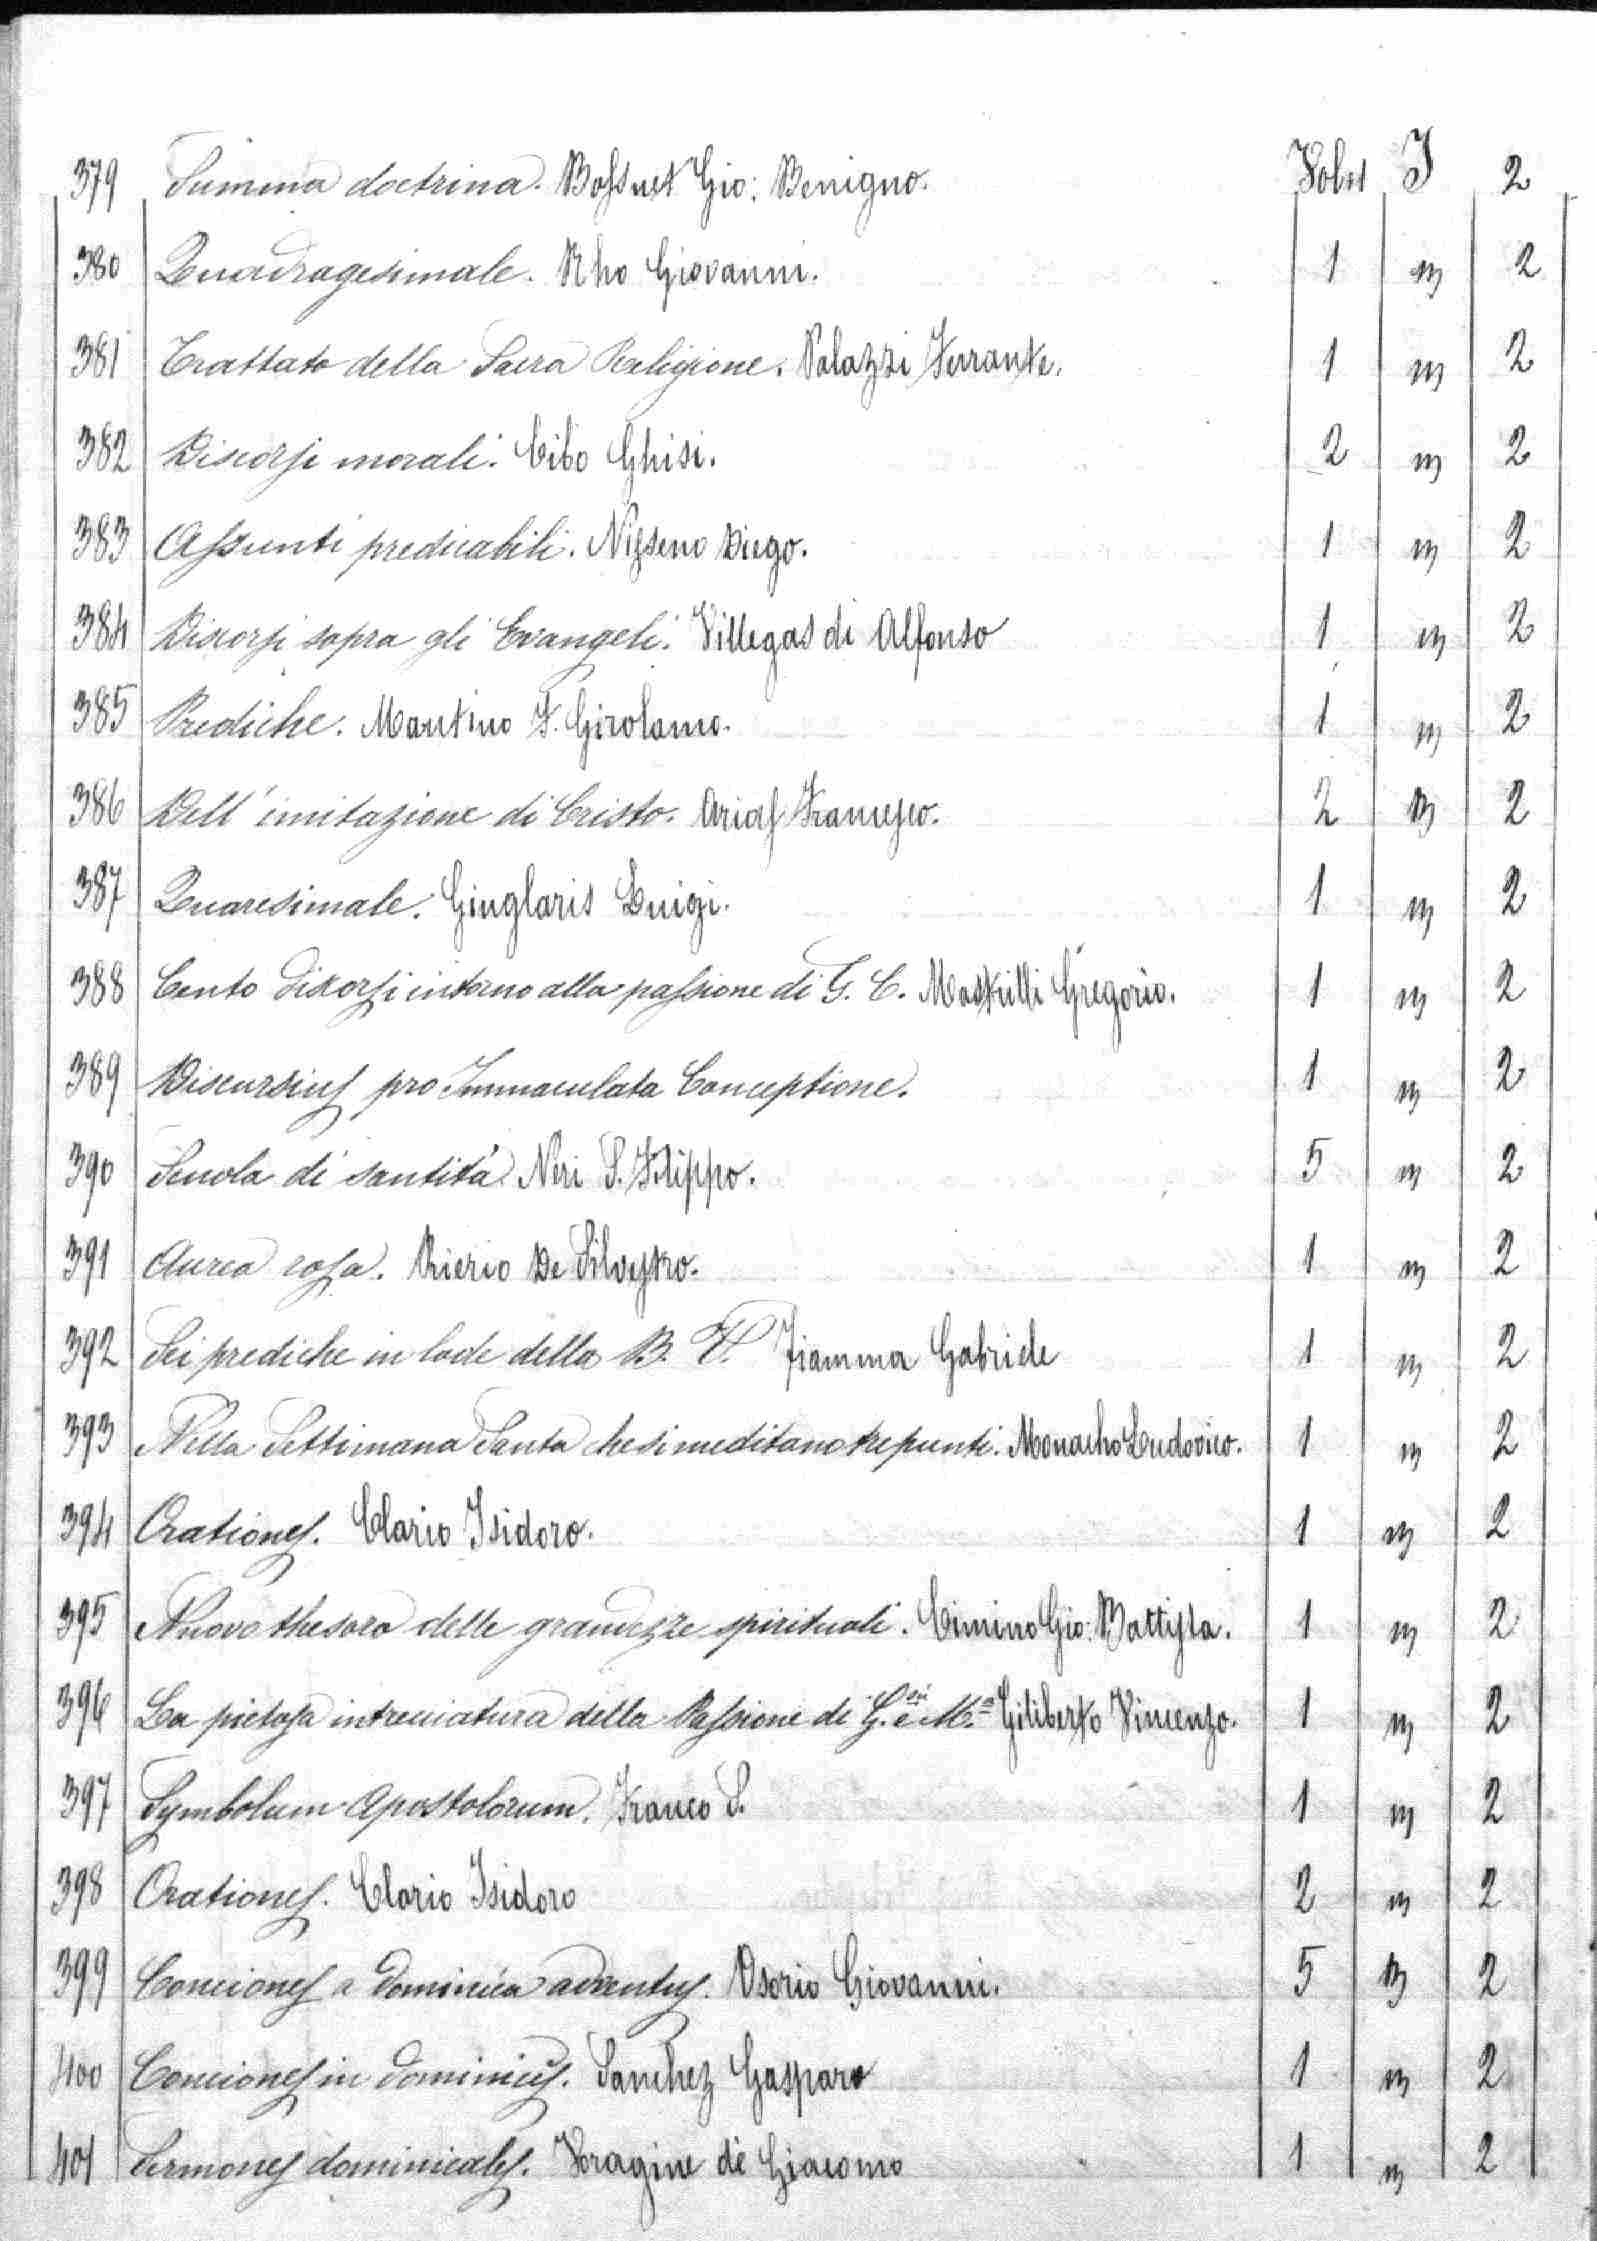 379 Summa doctrina. Bossuet Gio: Benigno. Vol 1 I 2
380 Quadragesimale. Rho Giovanni. 1 m 2
381 Trattato della Sacra Religione. Palazzi Ferrante. 1 m 2
382 Discorsi morali. Cibo Ghisi. 2 m 2
383 Assunti predicabili. Nisseno Diego. 1 m 2
384 Discorsi sopra gli Evangeli. Villegas di Alfonso 1 m 2
385 Prediche. Mantino F. Girolamo. 1 m 2
386 Dell'imitazione di Cristo. Arias Francesco. 2 B 2
387 Quaresimale. Giuglaris Luigi. 1 m 2
388 Cento discorsi intorno alla passione di G. C. Mastrilli Gregorio. 1 m 2
389 Discursius pro Immaculata Conceptione. 1 m 2
390 Scuola di santità Neri S. Filippo. 5 m 2
391 Aurea rosa. Prierio De Silvestro. 1 m 2
392 Sei prediche in lode della B. V. Fiamma Gabriele 1 m 2
393 Nella Settimana Santa che si meditano tre punti. Monacho Ludovico. 1 m 2
394 Orationes. Clario Isidoro. 1 m 2
395 Nuovo thesoro delle grandezze spirituali. Cimino Gio: Battista. 1 m 2
396 La pietosa intrecciatura della Passione di G. e M.a Giliberto Vincenzo. 1 m 2
397 Symbolum Apostolorum. Franco S. 1 m 2
398 Orationes. Clario Isidoro 2 m 2
399 Conciones a dominica adventus. Osorio Giovanni. 5 B 2
400 Conciones in dominicis. Sanchez Gasparo 1 m 2
401 Sermones dominicales. Voragine de Giacomo 1 m 2